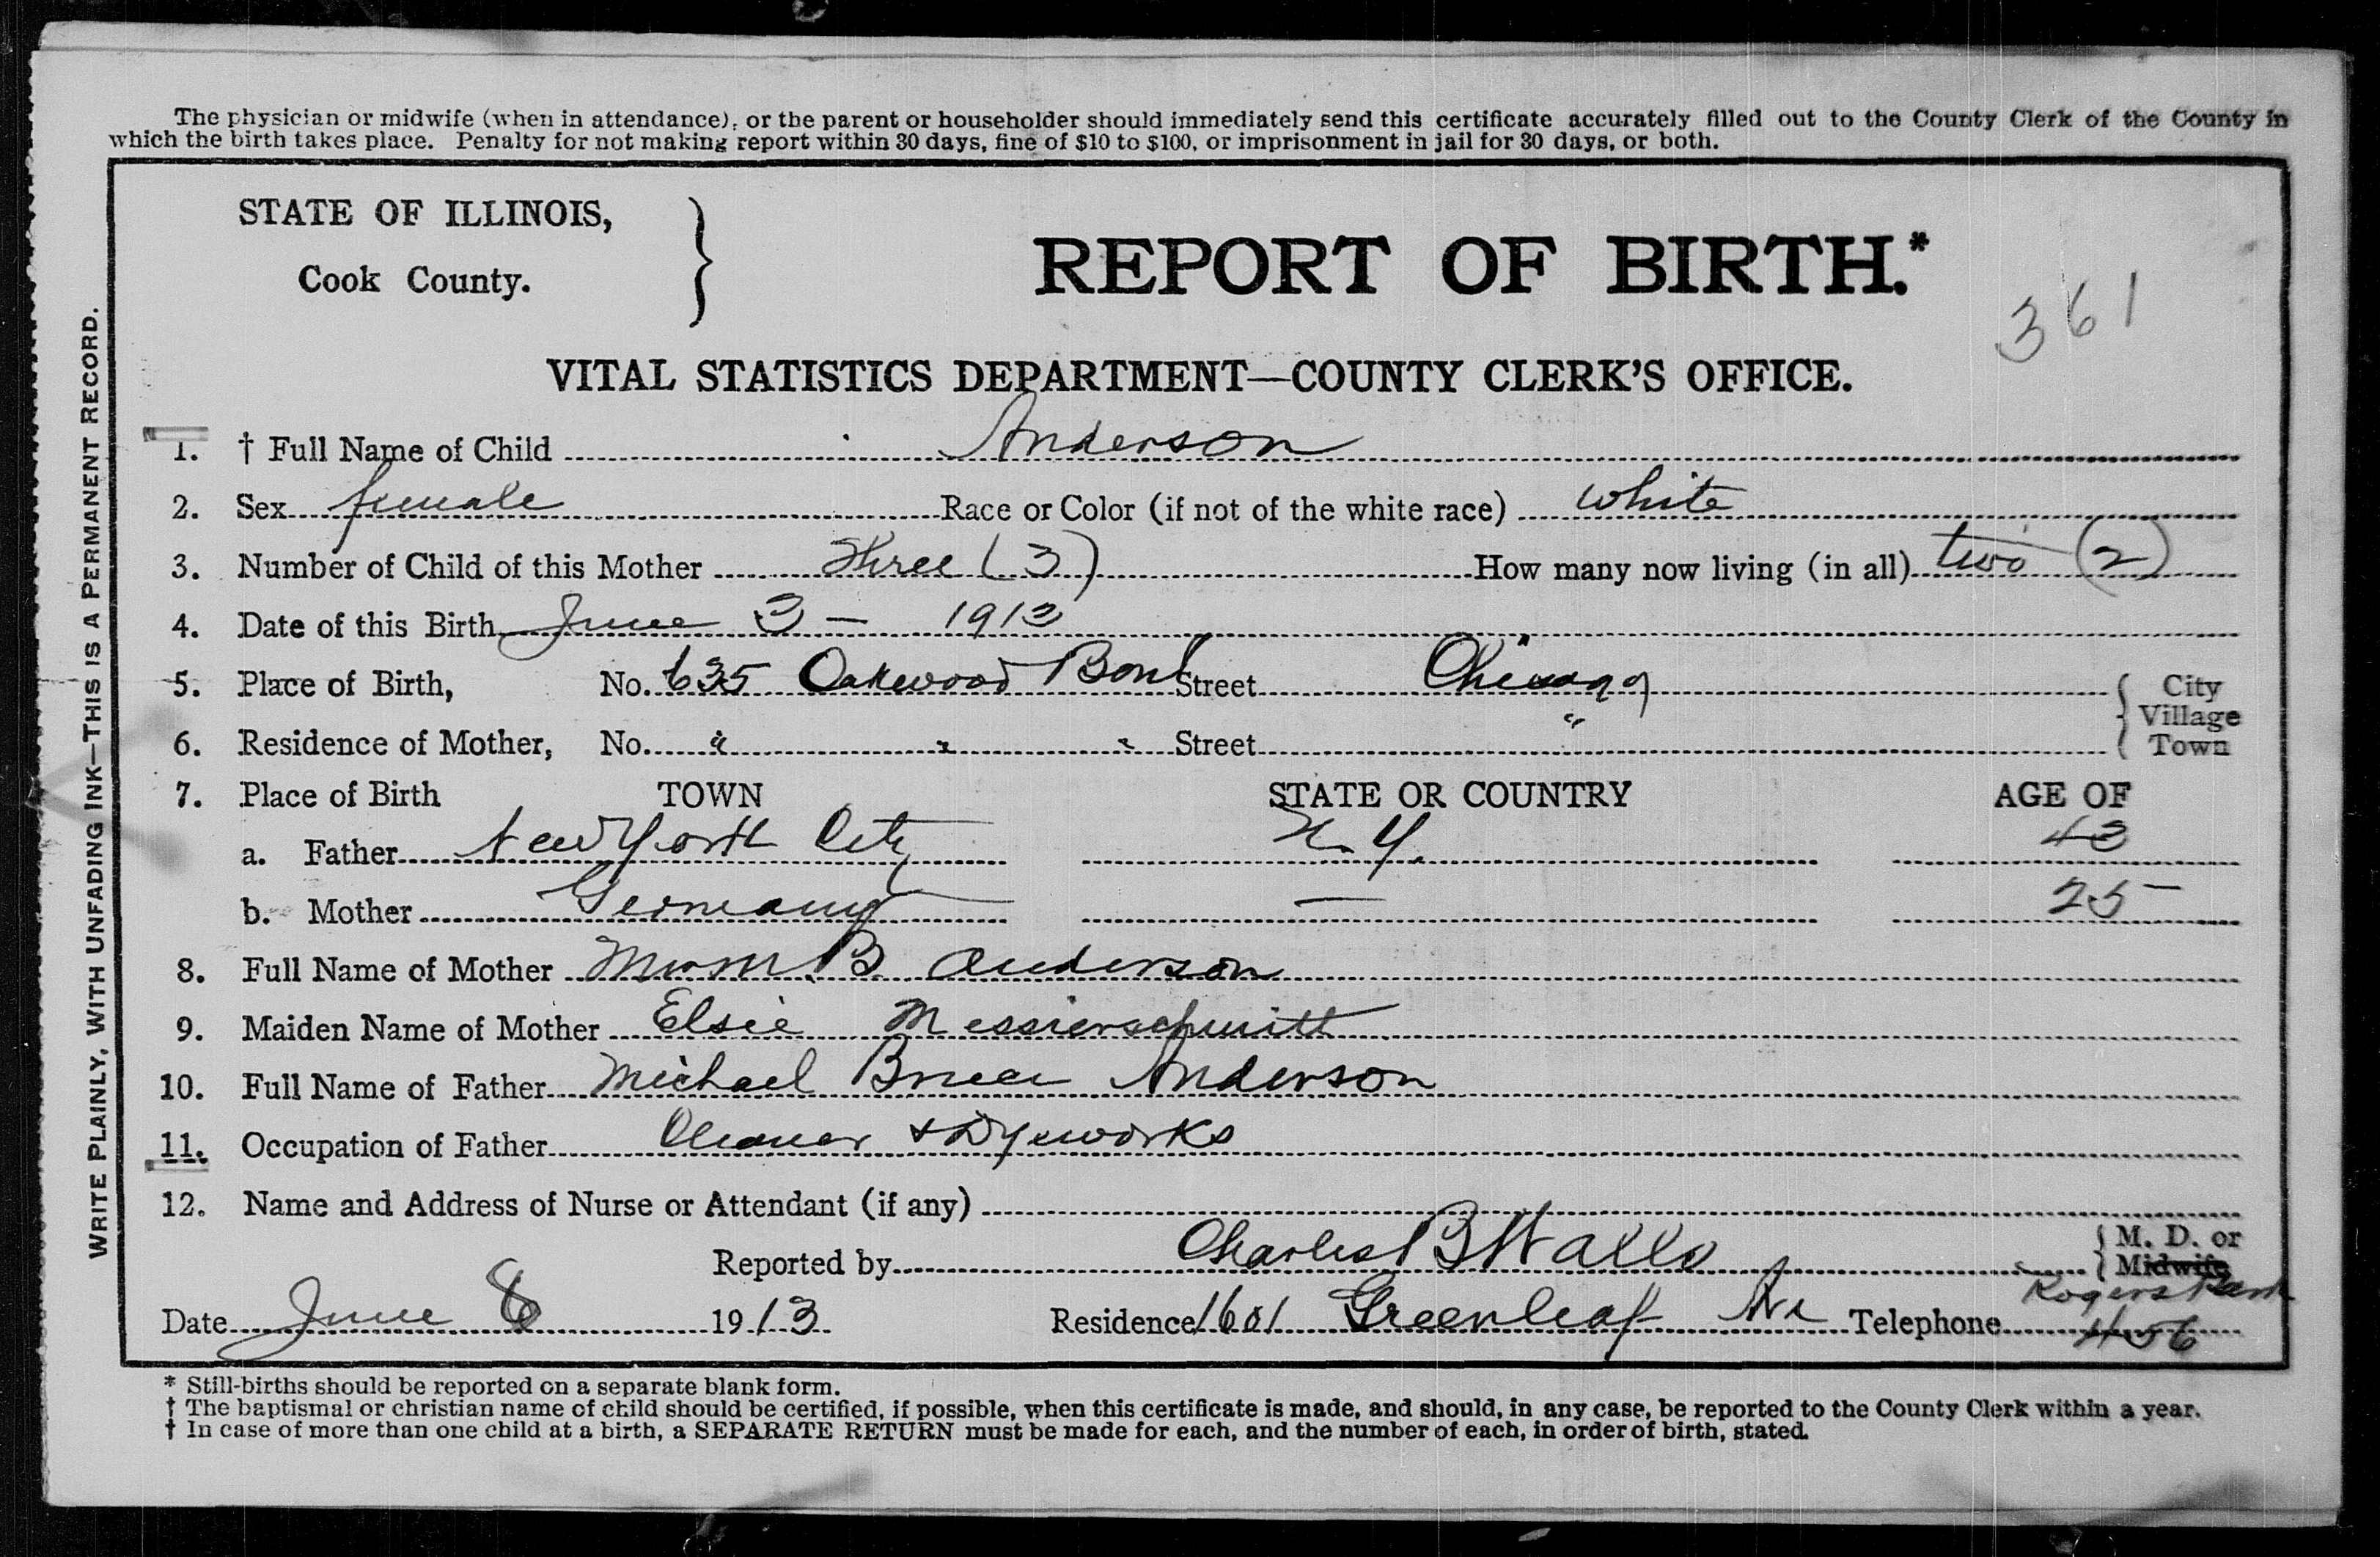 The physician or midwife (when in attendance), or the parent or householder should immediately send this certificate accurately filled out to the County Clerk of the County in
which the birth takes place. Penalty for not making report within 30 days, fine of $10 to $100, or imprisonment in jail for 30 days, or both.
STATE OF ILLINOIS,
Cook County.
REPORT OF BIRTH.*
361
VITAL STATISTICS DEPARTMENT—COUNTY CLERK'S OFFICE.
1. † Full Name of Child Anderson
2. Sex female Race or Color (if not of the white race) white
3. Number of Child of this Mother Three (3) How many now living (in all) two (2)
4. Date of this Birth June 3 - 1913
5. Place of Birth, No. 635 Oakwood Boul Street Chicago { City
Village
6. Residence of Mother, No. " " " Street " Town
7. Place of Birth TOWN STATE OR COUNTRY AGE OF
a. Father New York City N.Y. 43
b. Mother Germany — 25
8. Full Name of Mother Mrs M. B. Anderson
9. Maiden Name of Mother Elsie Messierschmitt
10. Full Name of Father Michael Bruce Anderson
11. Occupation of Father Cleaner & Dyeworks
12. Name and Address of Nurse or Attendant (if any)
Reported by Charles B { M. D. or
Midwife
Date June 1913 Residence 1601 Greenleaf Av Telephone Rogers Park
456
* Still-births should be reported on a separate blank form.
† The baptismal or christian name of child should be certified, if possible, when this certificate is made, and should, in any case, be reported to the County Clerk within a year.
† In case of more than one child at a birth, a SEPARATE RETURN must be made for each, and the number of each, in order of birth, stated.
WRITE PLAINLY, WITH UNFADING INK—THIS IS A PERMANENT RECORD.